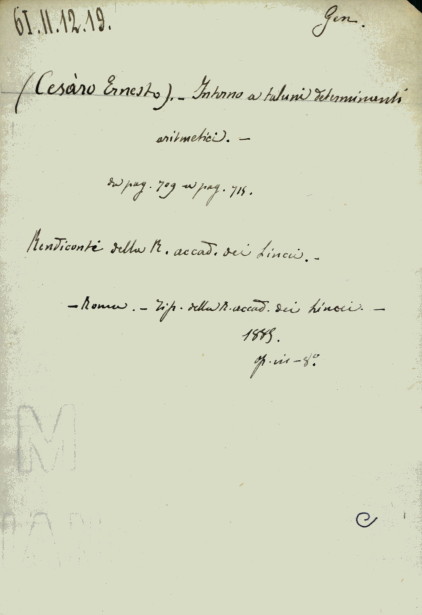 61.II.12.19.
Gen.
(Cesàro Ernesto). - Intorno a taluni determinanti
aritmetici. -
da pag. 709 a pag.
Rendiconti della R. accad. dei Lincei. -
- Roma. - Tip. della R. accad. dei Lincei. -
1885.
in-8°.